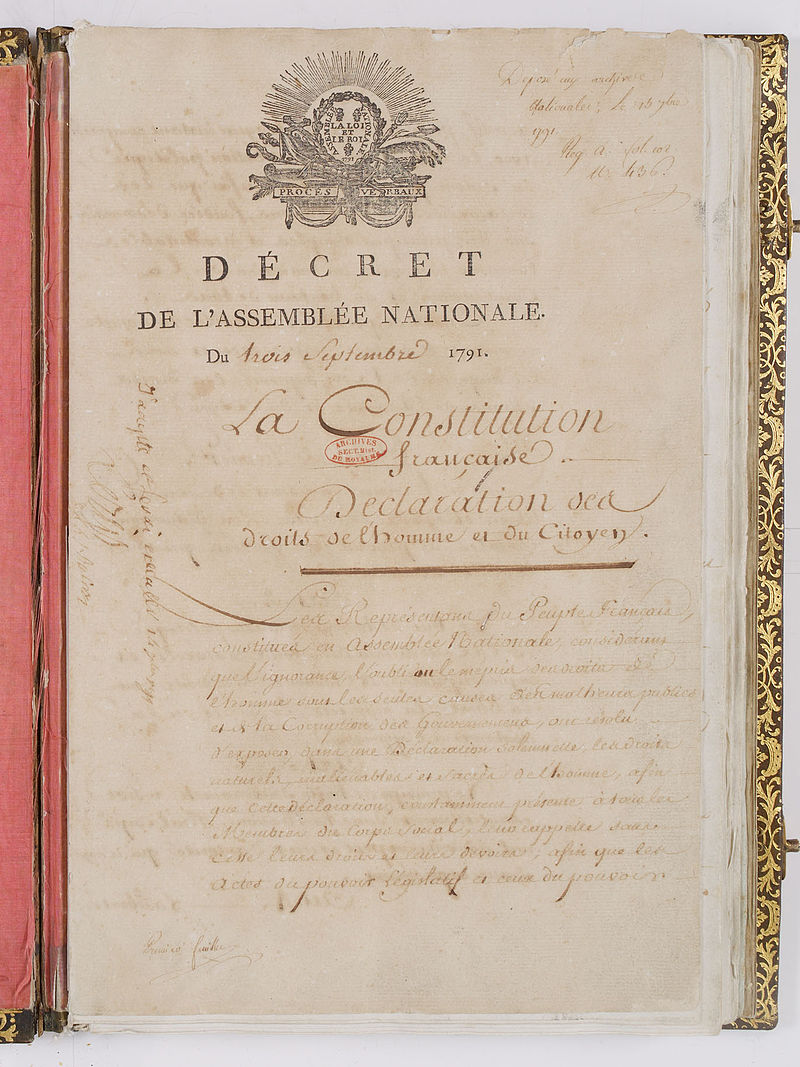 ASSEMBLÉE NATIONALE
LA LOI
ET
LE ROI
1791
PROCÈS VERBAUX
Déposé aux archives
Nationales, le 15 7bre
1791
Reg A. fol. 101
N. 436.
DÉCRET
DE L'ASSEMBLÉE NATIONALE.
Du trois Septembre 1791.
La Constitution
française.
ARCHIVES
SECT. HIST.
DU ROYAUME
Déclaration des
droits de l'homme et du Citoyen.
J'accepte et ferai exécuter 14 7bre 1791
Les Représentans du Peuple Français,
constitués en Assemblée Nationale, considérant
que l'ignorance, l'oubli ou le mépris des droits de
l'homme sont les seules causes des malheurs publics
et de la Corruption des Gouvernemens, ont résolu
d'exposer, dans une Déclaration Solemnelle, les droits
naturels, inaliénables et Sacrés de l'homme, afin
que cette déclaration, constamment présente à tous les
Membres du Corps Social, leur rappelle sans
cesse leurs droits et leurs devoirs; afin que les
Actes du pouvoir Législatif et ceux du pouvoir
Première feuille